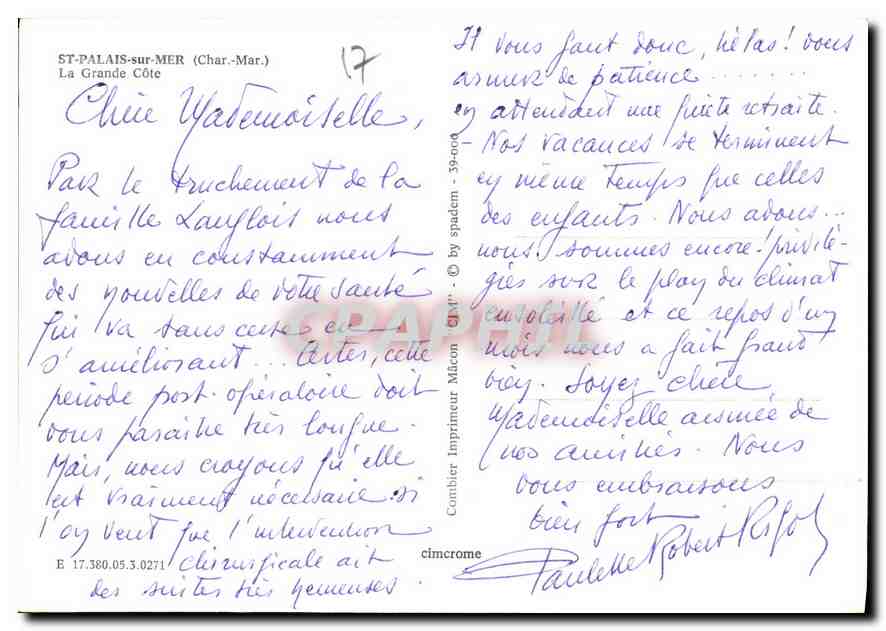 ST-PALAIS-sur-MER (Char.-Mar.)
La Grande Côte
17
Chère Mademoiselle,
Par le truchement de la
famille Langlois nous
avons eu constamment
des nouvelles de votre santé
qui va sans cesse en
s'améliorant... Certes, cette
période post-opératoire doit
vous paraître très longue.
Mais, nous croyons qu'elle
est vraiment nécessaire si
l'on veut que l'intervention
chirurgicale ait
des suites très heureuses.
E 17.380.05.3.0271
Combier Imprimeur Mâcon "CIM" - © by spadem - 39-000
cimcrome
Il vous faut donc, hélas! vous
armer de patience........
en attendant une petite retraite.
- Nos vacances se terminent
en même temps que celles
des enfants. Nous avons...
nous sommes encore! privilé-
giés sur le plan du climat
ensoleillé et ce repos d'un
mois nous a fait grand
bien. Soyez chère
Mademoiselle assurée de
nos amitiés. Nous
vous embrassons
bien fort
Paulette Robert Rigol
CPAPHIL